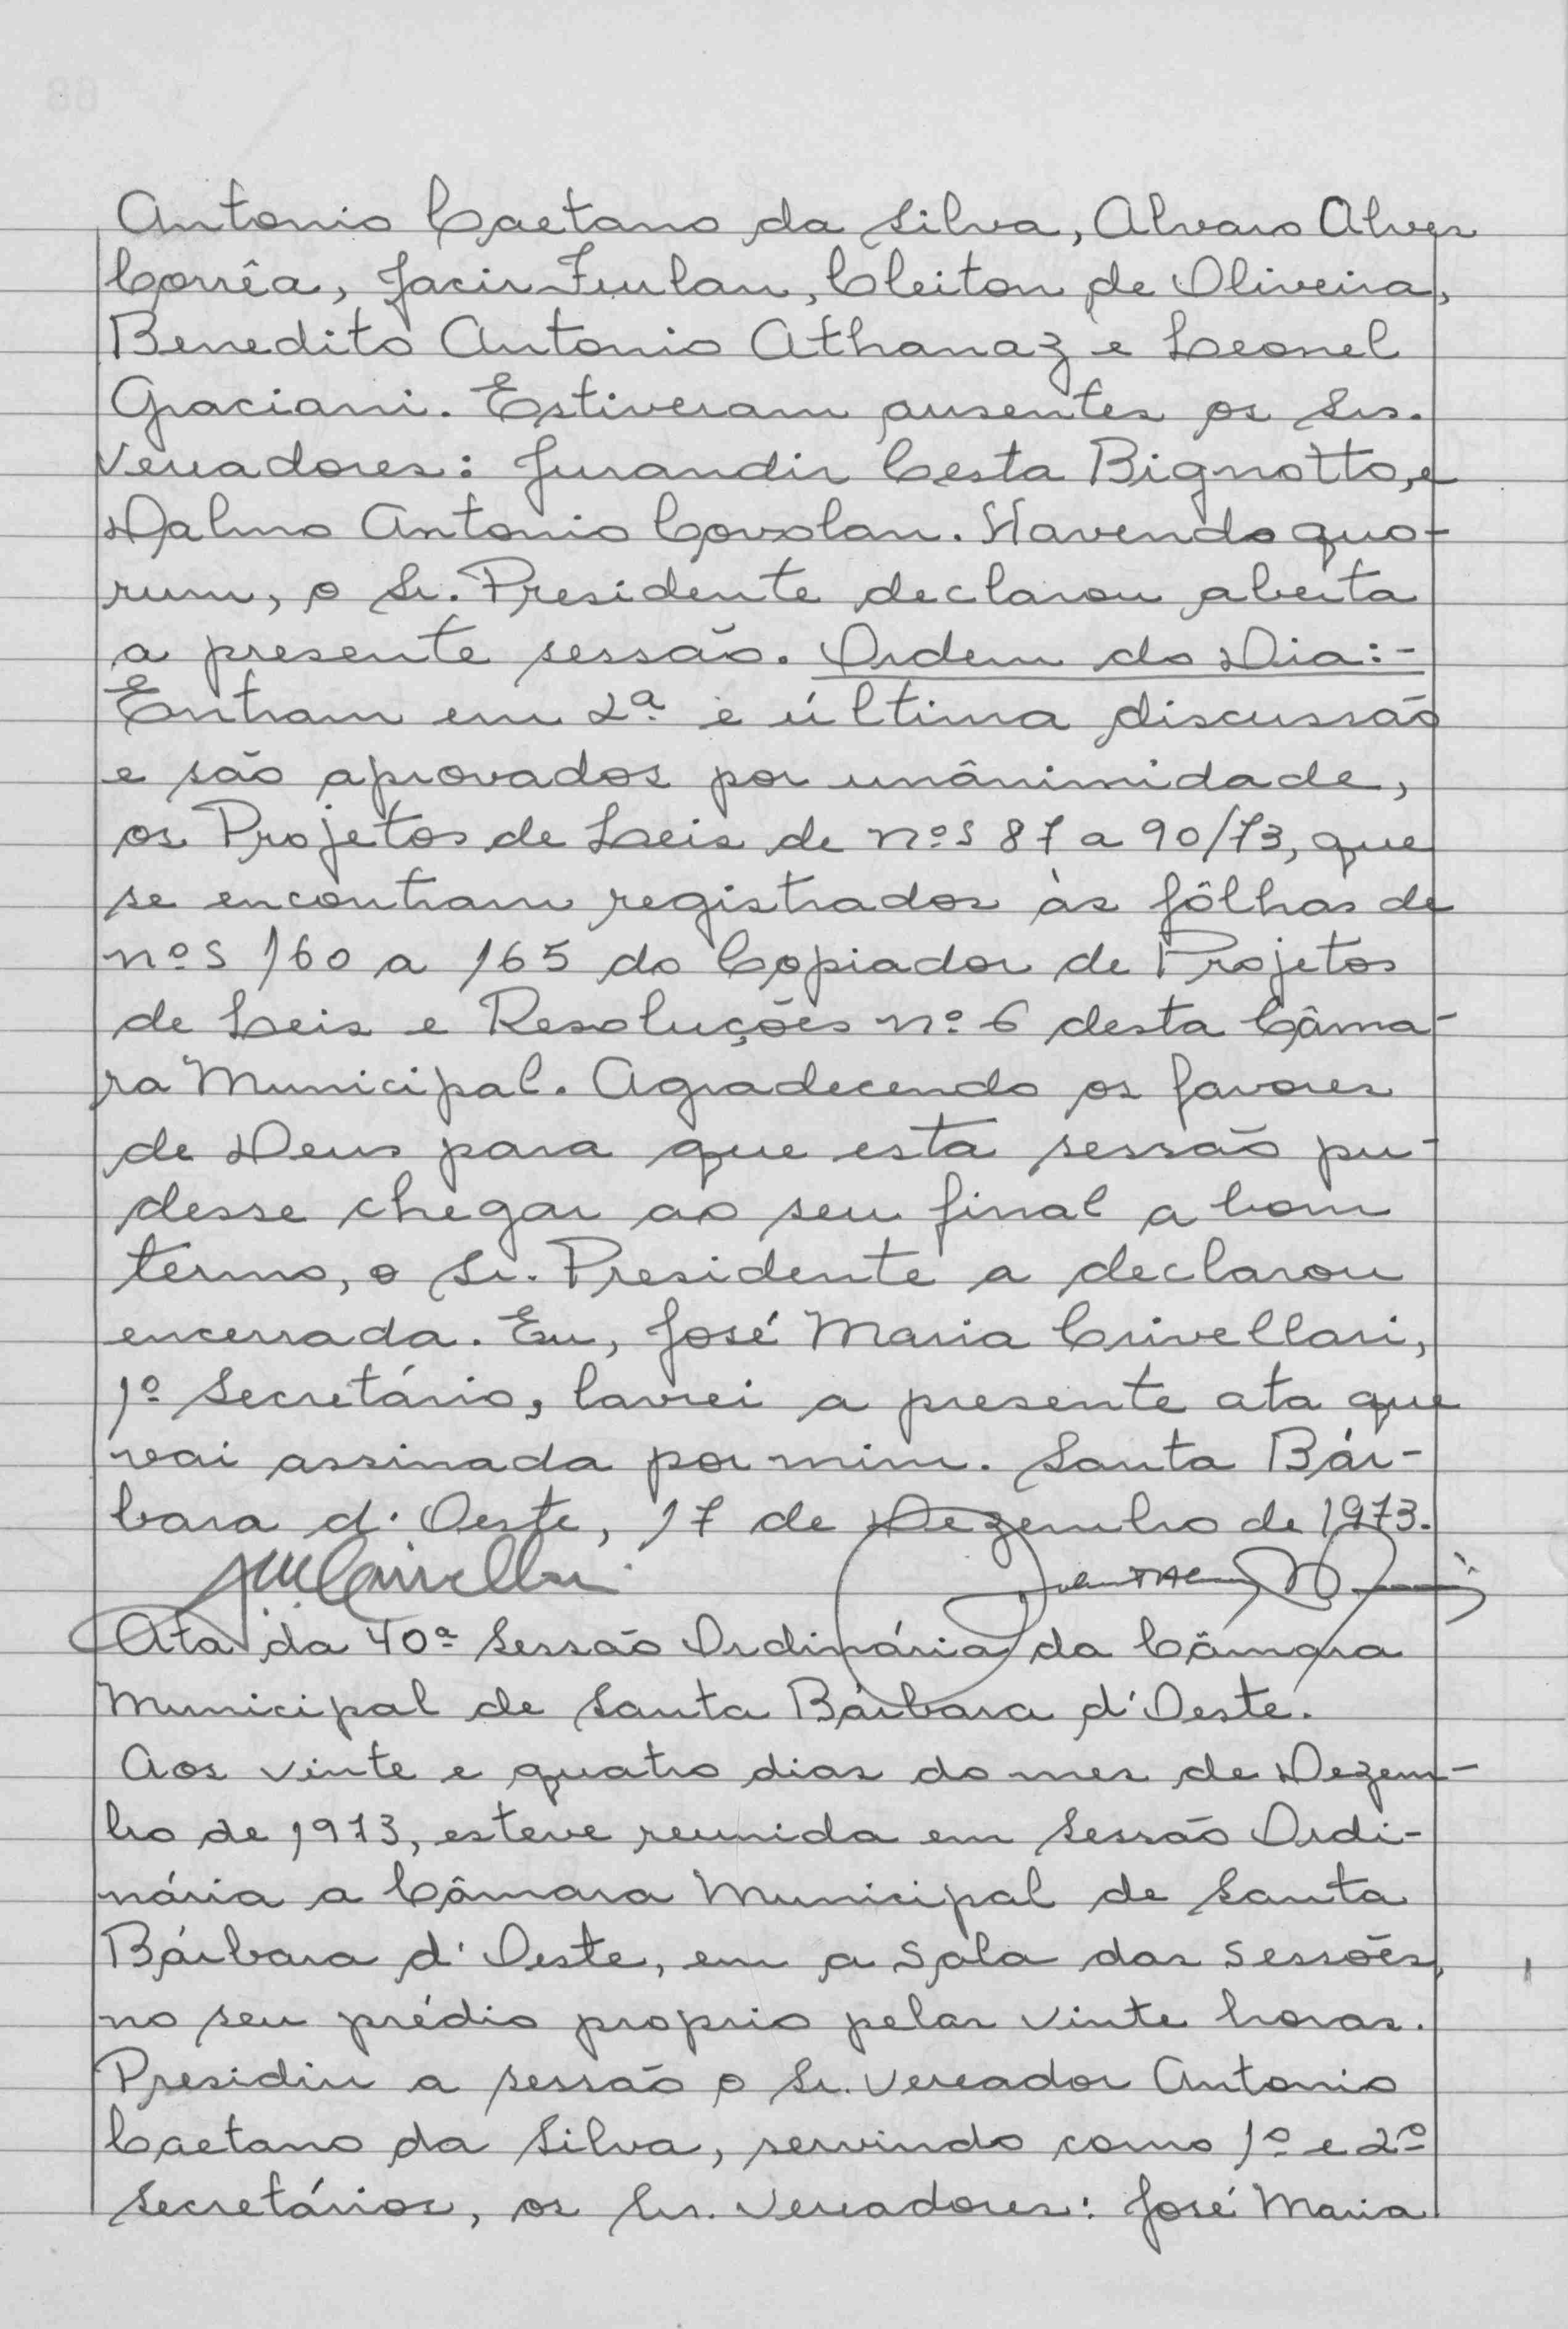 Antonio Caetano da Silva, Alvaro Alves
Corrêa, Jacir Furlan, Cleiton de Oliveira,
Benedito Antonio Athanaz e Leonel
Graciani. Estiveram ausentes os Srs.
Vereadores: Jurandir Cesta Bignotto, e
Dalmo Antonio Covolan. Havendo quo-
rum, o Sr. Presidente declarou aberta
a presente sessão. Ordem do Dia:-
Entram em 2ª e última discussão
e são aprovados por unânimidade,
os Projetos de Leis de nºs 87 a 90/73, que
se encontram registrados às fôlhas de
nºs 160 a 165 do Copiador de Projetos
de Leis e Resoluções nº 6 desta Câma-
ra Municipal. Agradecendo os favores
de Deus para que esta sessão pu-
desse chegar ao seu final a bom
termo, o Sr. Presidente a declarou
encerrada. Eu, José Maria Crivellari,
1º Secretário, lavrei a presente ata que
vai assinada por mim. Santa Bár-
bara d'Oeste, 17 de Dezembro de 1973.
Ata da 40ª Sessão Ordinária da Câmara
Municipal de Santa Bárbara d'Oeste.
Aos vinte e quatro dias do mes de Dezem-
bro de 1973, esteve reunida em Sessão Ordi-
nária a Câmara Municipal de Santa
Bárbara d'Oeste, em a Sala das Sessões,
no seu prédio proprio pelas vinte horas.
Presidiu a sessão o Sr. Vereador Antonio
Caetano da Silva, servindo como 1º e 2º
Secretários, os Srs. Vereadores: José Maria